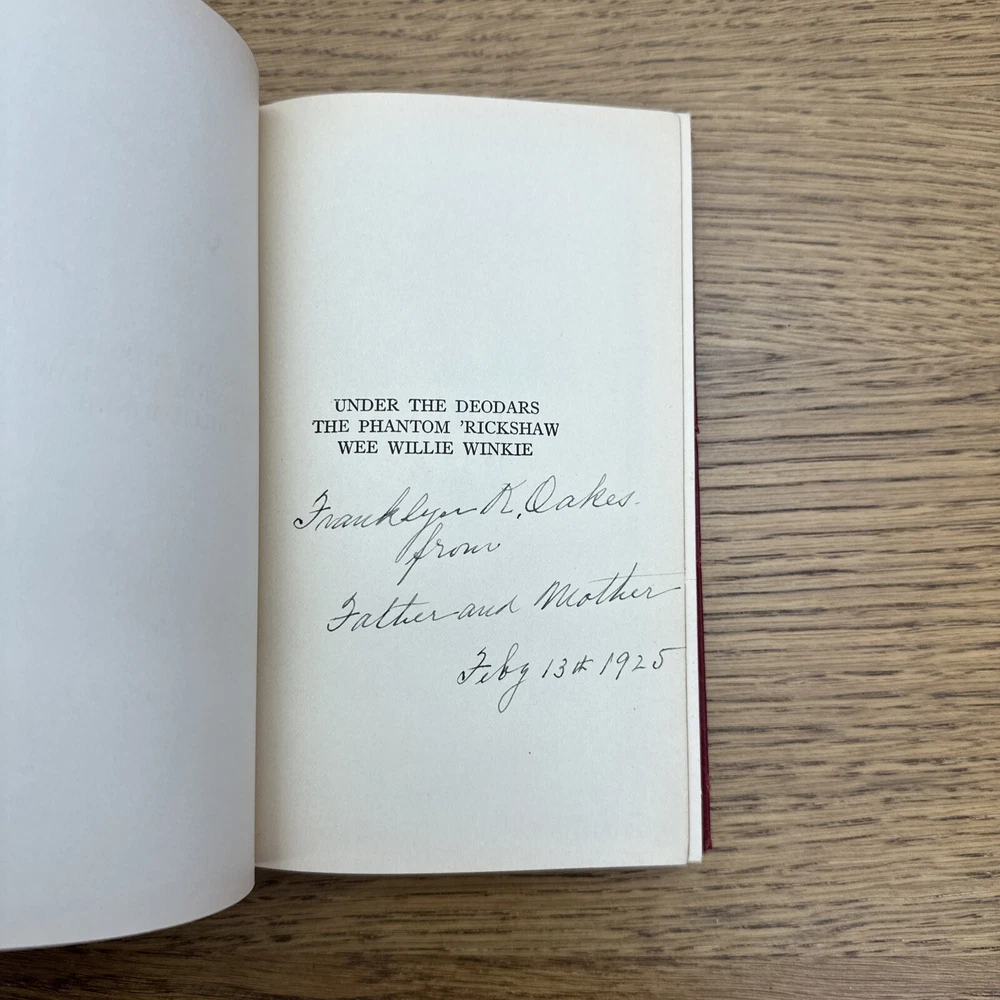 UNDER THE DEODARS
THE PHANTOM 'RICKSHAW
WEE WILLIE WINKIE
Franklyn K. Oakes.
from
Father and Mother
Feby 13th 1925